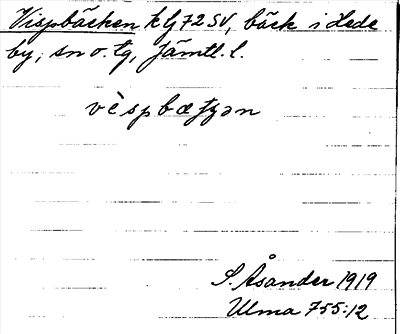 Vispbäcken k G72 SV, bäck i Hede
by, sn o. tg, Jämtl. l.
vèspbætʃən
S. Åsander 1919
Ulma 755:12